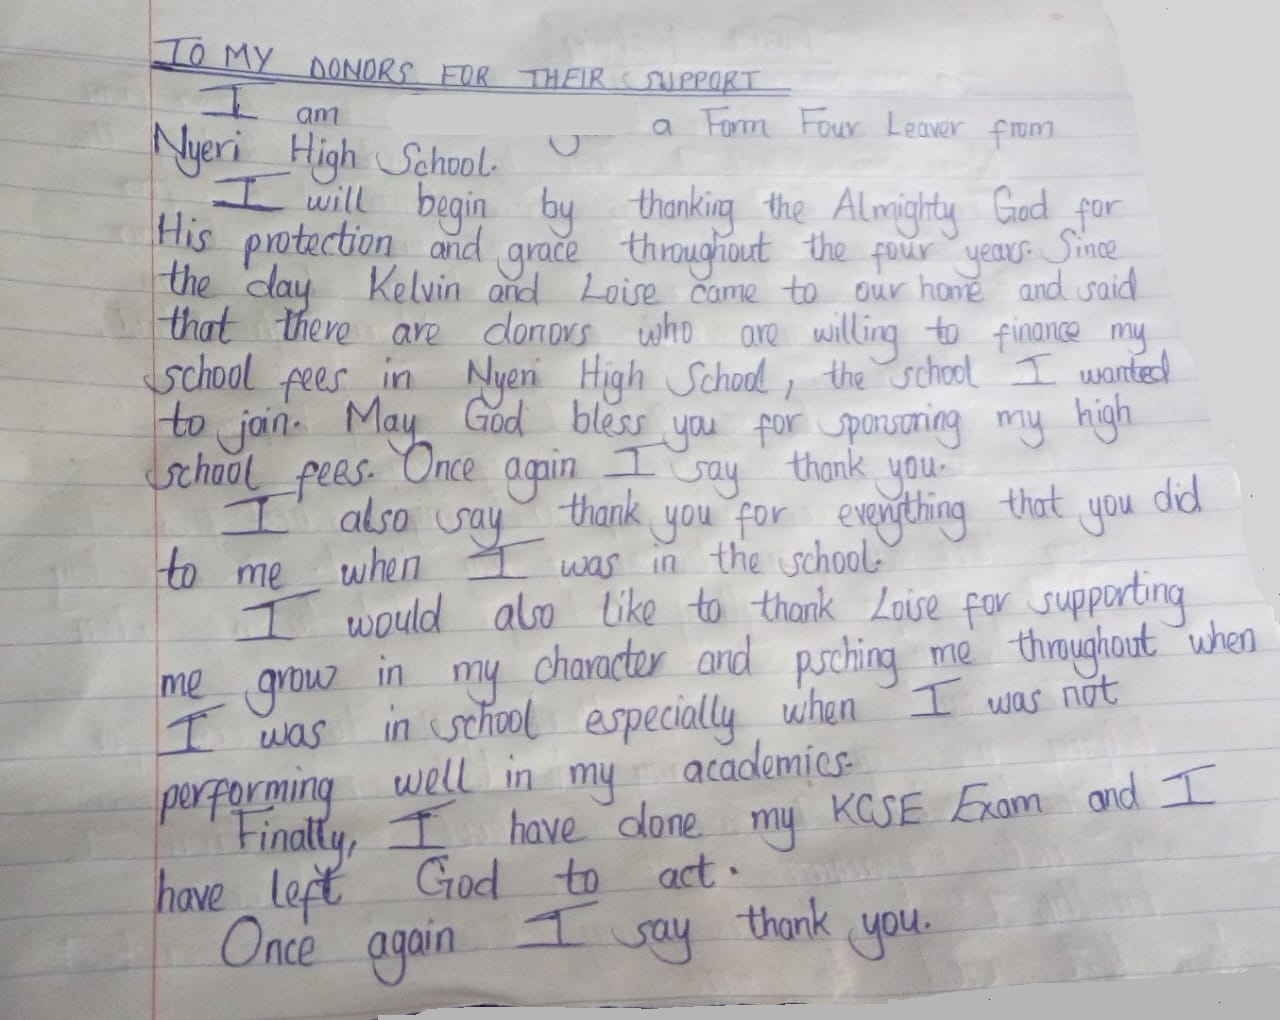 TO MY DONORS FOR THEIR SUPPORT
I am a Form Four Leaver from
Nyeri High School.
I will begin by thanking the Almighty God for
His protection and grace throughout the four years. Since
the day Kelvin and Loise came to our home and said
that there are donors who are willing to finance my
school fees in Nyeri High School, the school I wanted
to join. May God bless you for sponsoring my high
school fees. Once again I say thank you.
I also say thank you for everything that you did
to me when I was in the school.
I would also like to thank Loise for supporting
me grow in my character and psching me throughout when
I was in school especially when I was not
performing well in my academics.
Finally, I have done my KCSE Exam and I
have left God to act.
Once again I say thank you.